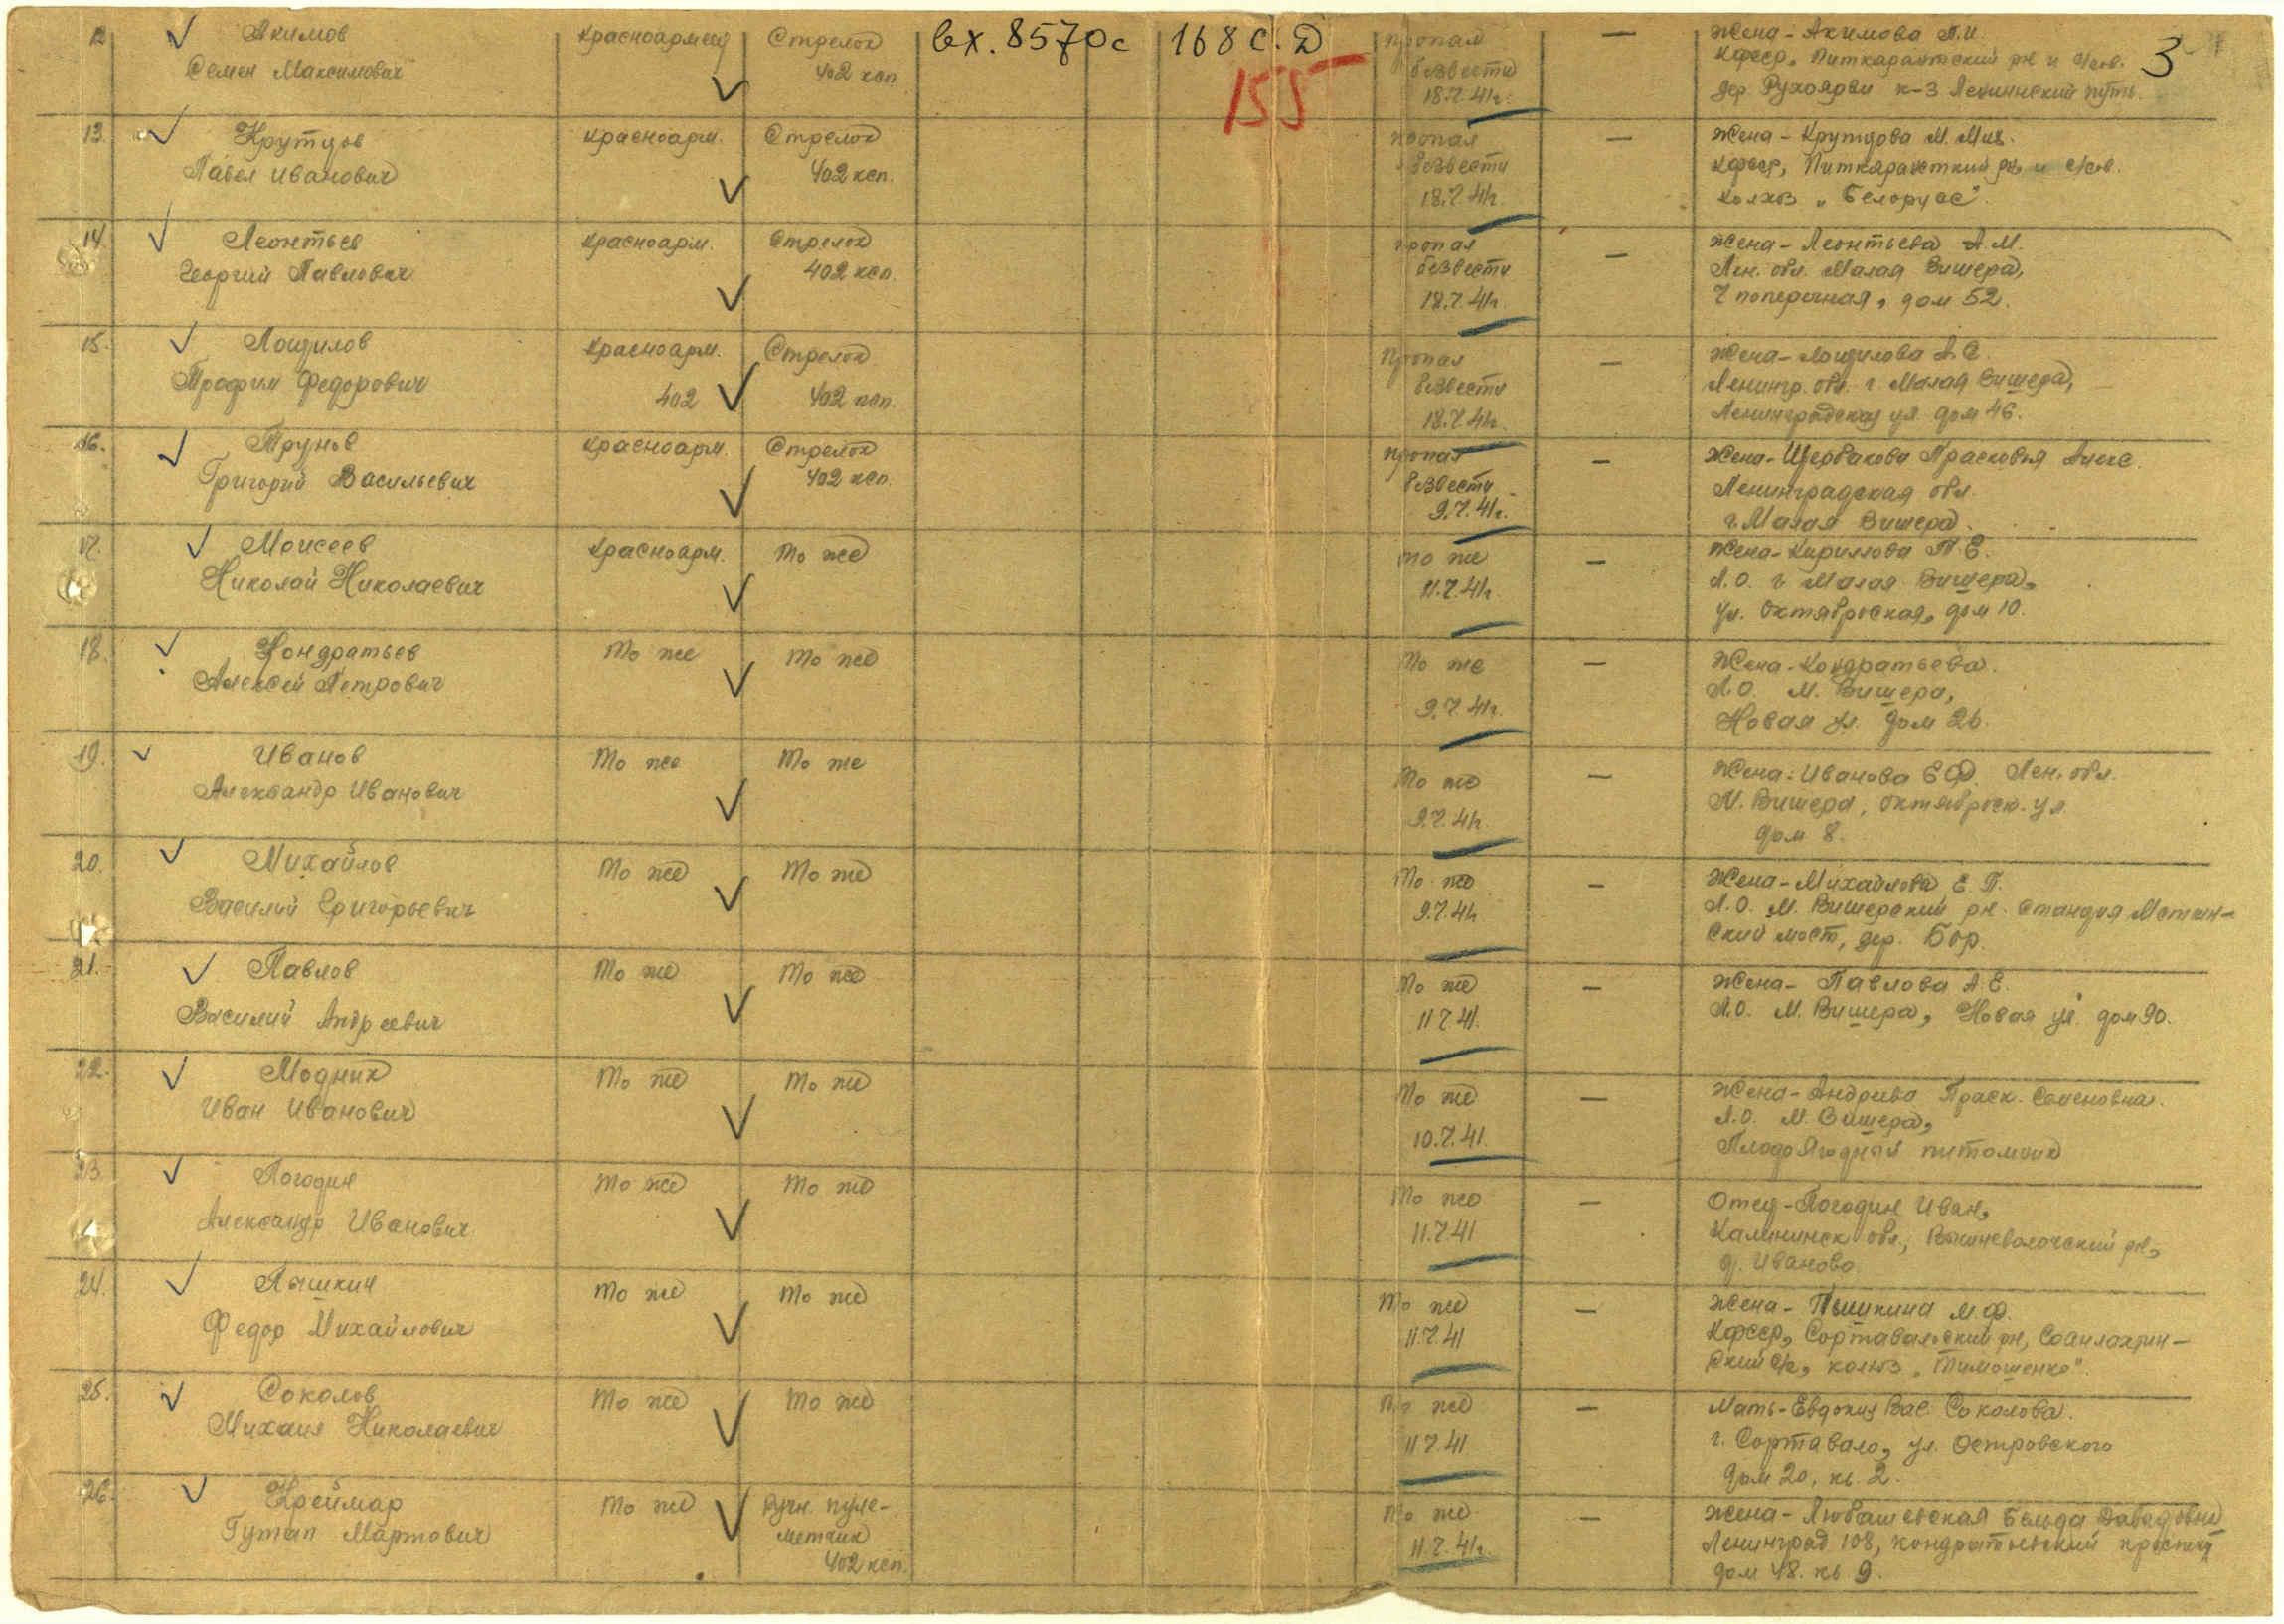 вх. 8570с 168 с. Д
155
3
12 Акимов
Семен Максимович
Красноармеец
Стрелок
402 ксп.
пропал
безвести
18.7.41г.
—
Жена - Акимова П.И.
Кфсср, Питкярантский рн и с/сов.
дер. Рухоярви к-з Ленинский путь.
13. Крутцов
Павел Иванович
Красноарм.
Стрелок
402 ксп.
пропал
безвести
18.7.41г.
—
Жена - Крутцова М. Мих.
Кфсср, Питкярантский рн и с/сов.
Колхоз „Белорусс".
14. Леонтьев
Георгий Павлович
Красноарм.
Стрелок
402 ксп.
пропал
безвести
18.7.41г.
—
Жена - Леонтьева А.М.
Лен. обл. Малая Вишера,
7 поперечная, дом 52.
15. Лощилов
Трофим Федорович
Красноарм.
402
Стрелок
402 ксп.
Пропал
безвести
18.7.41г.
—
Жена - Лощилова А.С.
Ленингр. обл. г. Малая Вишера,
Ленинградская ул дом 46.
16. Трунов
Григорий Васильевич
Красноарм.
Стрелок
402 ксп.
пропал
безвести
9.7.41г.
—
Жена - Щербакова Прасковья Алекс.
Ленинградская обл.
г. Малая Вишера.
17. Моисеев
Николай Николаевич
Красноарм.
то же
то же
11.7.41г.
—
Жена - Кириллова Т.Е.
Л.О. г. Малая Вишера,
ул. Октябрьская, дом 10.
18. Кондратьев
Алексей Петрович
то же
то же
то же
9.7.41г.
—
Жена - Кондратьева.
Л.О. М. Вишера,
Новая ул. дом 26.
19. Иванов
Александр Иванович
то же
то же
то же
9.7.41г.
—
Жена: Иванова Е.Ф. Лен. обл.
М. Вишера, октябрьск. ул
дом 8.
20. Михайлов
Василий Григорьевич
то же
то же
то же
9.7.41г.
—
Жена - Михайлова Е.П.
Л.О. М. Вишерский рн. станция Мстин-
ский мост, дер. Бор.
21. Павлов
Василий Андреевич
то же
то же
то же
11.7.41.
—
Жена - Павлова А.Е.
Л.О. М. Вишера, Новая ул. дом 90.
22. Модник
Иван Иванович
то же
то же
то же
10.7.41.
—
Жена - Андреева Праск. Семеновна.
Л.О. М. Вишера,
Плодо Ягодный питомник
23. Погодин
Александр Иванович
то же
то же
то же
11.7.41
—
Отец - Погодин Иван,
Калининск обл., Вышневолочский рн,
д. Иваново.
24. Пышкин
Федор Михайлович
то же
то же
то же
11.7.41
—
Жена - Пышкина М.Ф.
Кфсср, Сортавальский рн, Соанлахтин-
ский с/с, колхоз „Тимошенко".
25. Соколов
Михаил Николаевич
то же
то же
то же
11.7.41
—
Мать - Евдокия Вас. Соколова.
г. Сортавало, ул. Островского
дом 20, кв. 2.
26. Креймар
Гутап Мартович
то же
ручн. пуле-
метчик
402 ксп.
то же
11.7.41г.
—
Жена - Любашевская Бельда Давыдовна
Ленинград 108, кондратьевский проспект
дом 48. кв 9.